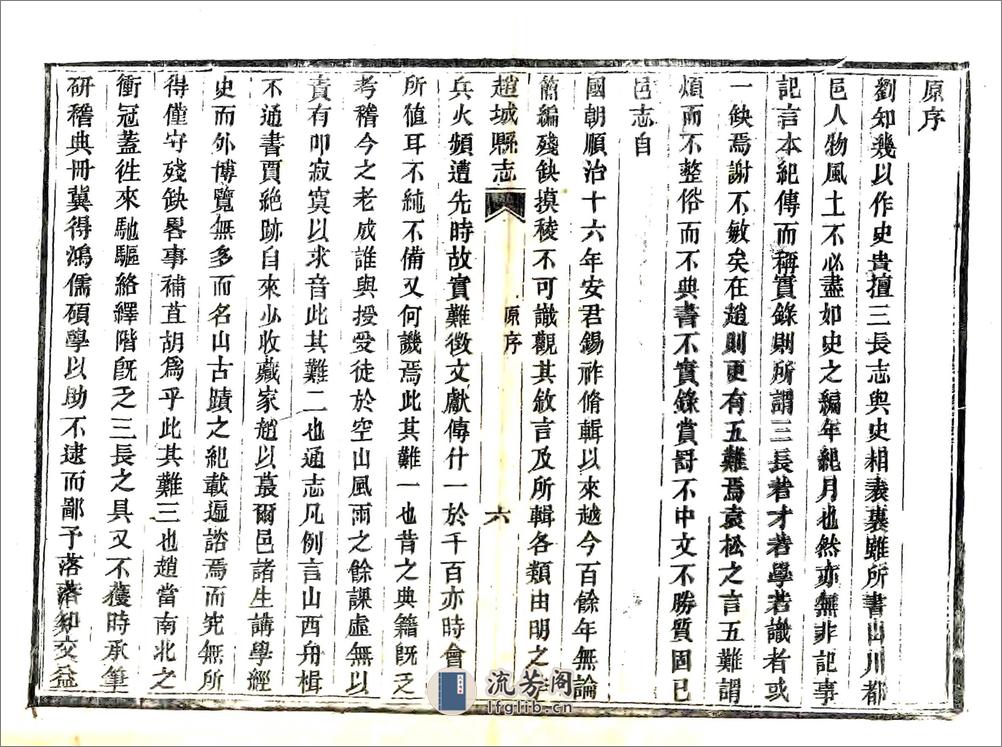 原序
劉知幾以作史貴擅三長志與史相表裏雖所書山川都
邑人物風土不必盡如史之編年紀月也然亦無非記事
記言本紀傳而稱實錄則所謂三長若才若學若識者或
一缺焉謝不敏矣在趙則更有五難焉袁松之言五難謂
煩而不整俗而不典書不實錄賞罸不中文不勝質固已
邑志自
國朝順治十六年安君錫祚脩輯以來越今百餘年無論
簡編殘缺摸稜不可識觀其敘言及所輯各類由明之
趙城縣志
原序
六
兵火頻遭先時故實難徵文獻傳什一於千百亦時會
所值耳不純不備又何譏焉此其難一也昔之典籍旣乏
考稽今之老成誰與授受徒於空山風雨之餘課虛無以
責有叩寂寞以求音此其難二也通志凡例言山西舟楫
不通書賈絶跡自來少收藏家趙以蕞爾邑諸生講學經
史而外博覽無多而名山古蹟之紀載遍諮焉而究無所
得僅守殘缺畧事補苴胡爲乎此其難三也趙當南北之
衝冠蓋徃來馳驅絡繹階旣乏三長之具又不獲時承筆
研稽典冊冀得鴻儒碩學以助不逮而鄙予落落知交益
流芳阁
lfglib.cn